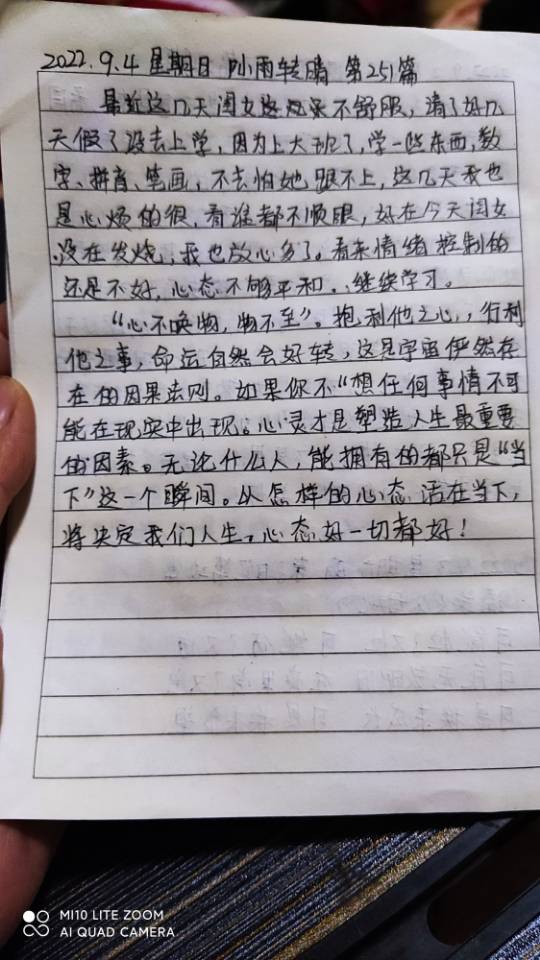 2022.9.4 星期日 小雨转晴 第251篇
最近这几天闺女感冒不舒服,请了好几
天假了没去上学,因为上大班了,学一些东西,数
字、拼音、笔画,不去怕她跟不上,这几天我也
是心烦的很,看谁都不顺眼,好在今天闺女
没在发烧,我也放心多了。看来情绪控制的
还是不好,心态不够平和..继续学习。
“心不唤物,物不至”。抱利他之心,行利
他之事,命运自然会好转,这是宇宙俨然存
在的因果法则。如果你不“想任何事情不可
能在现实中出现。心灵才是塑造人生最重要
的因素。无论什么人,能拥有的都只是“当
下”这一个瞬间。以怎样的心态活在当下,
将决定我们人生。心态好一切都好!
MI10 LITE ZOOM
AI QUAD CAMERA